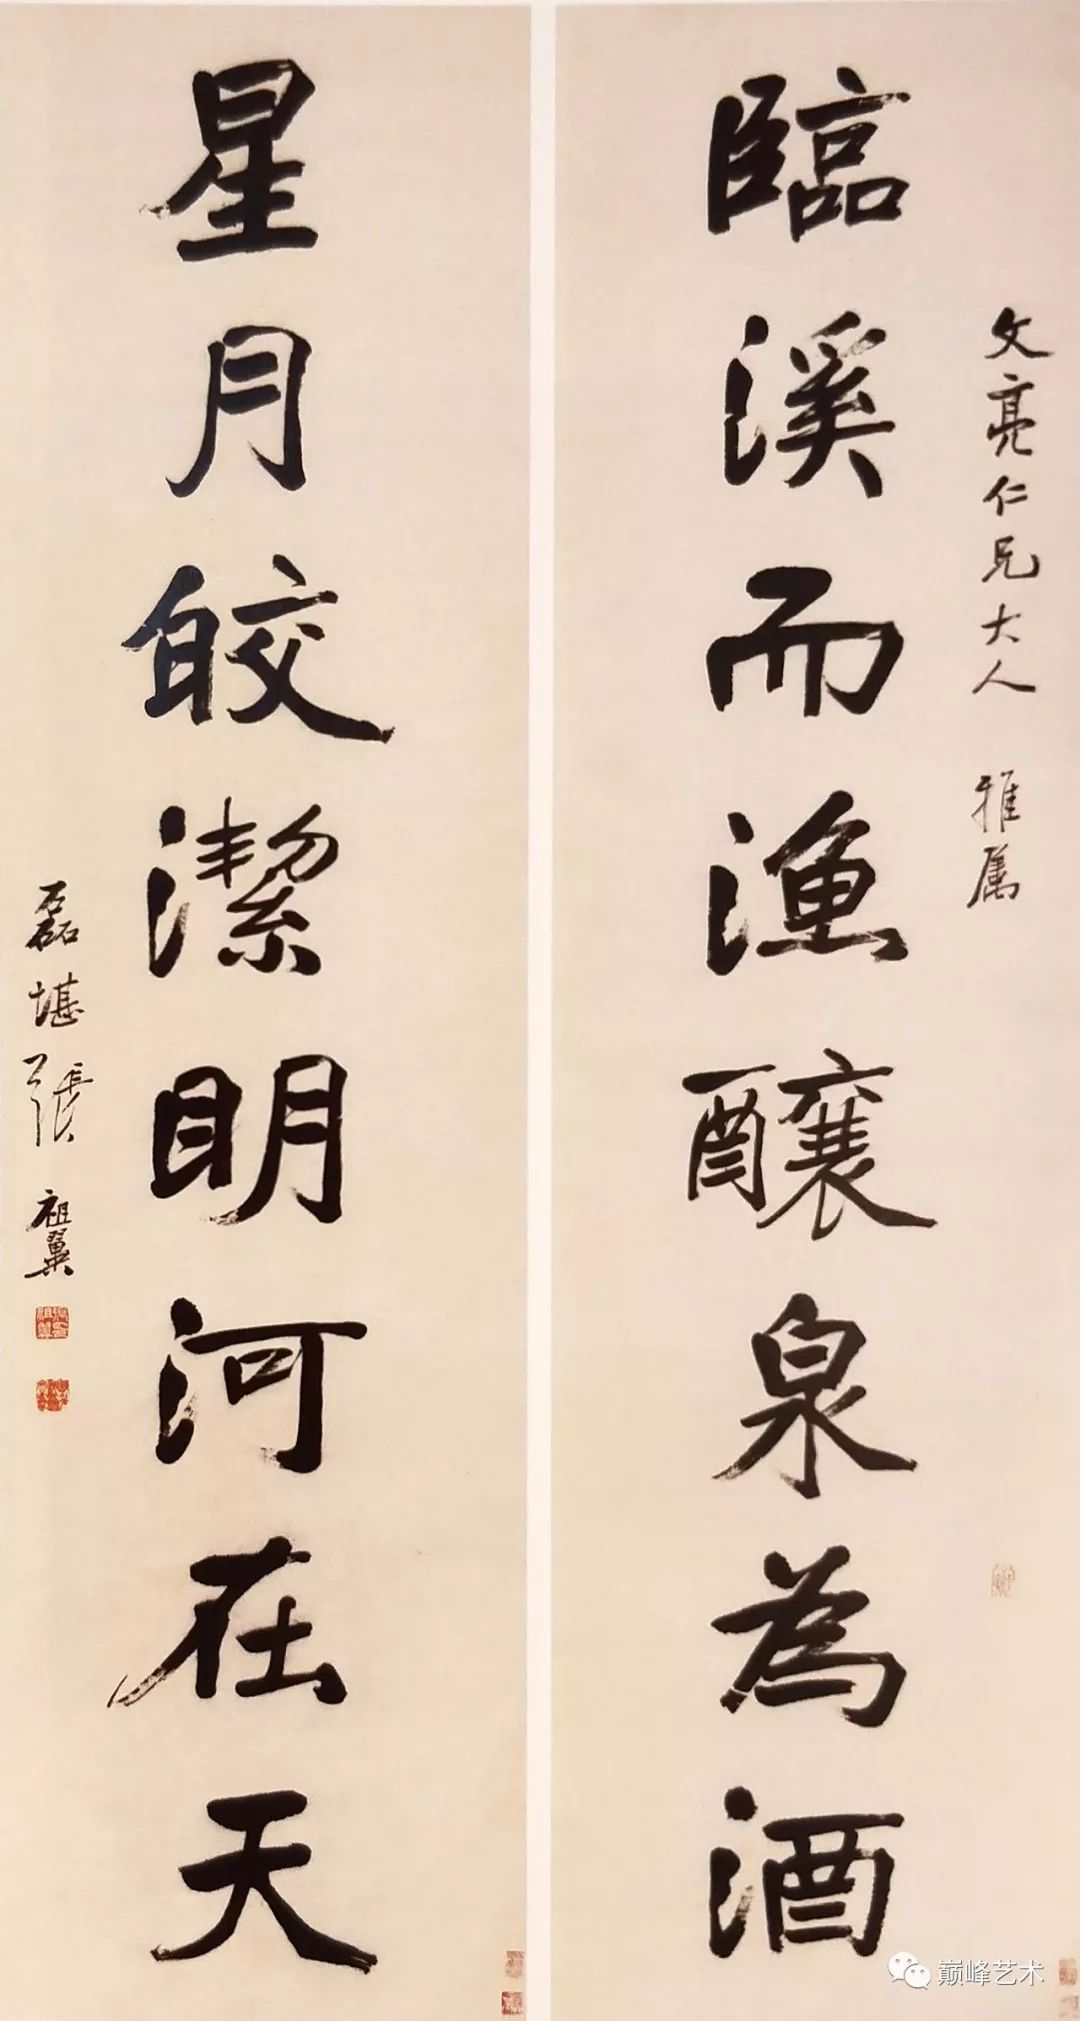 文亮仁兄大人 雅属
臨溪而漁釀泉為酒
星月皎潔明河在天
磊堪張祖翼
巅峰艺术